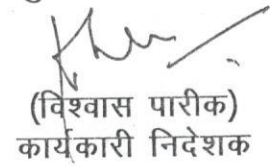 (विश्वास पारीक)
कार्यकारी निदेशक